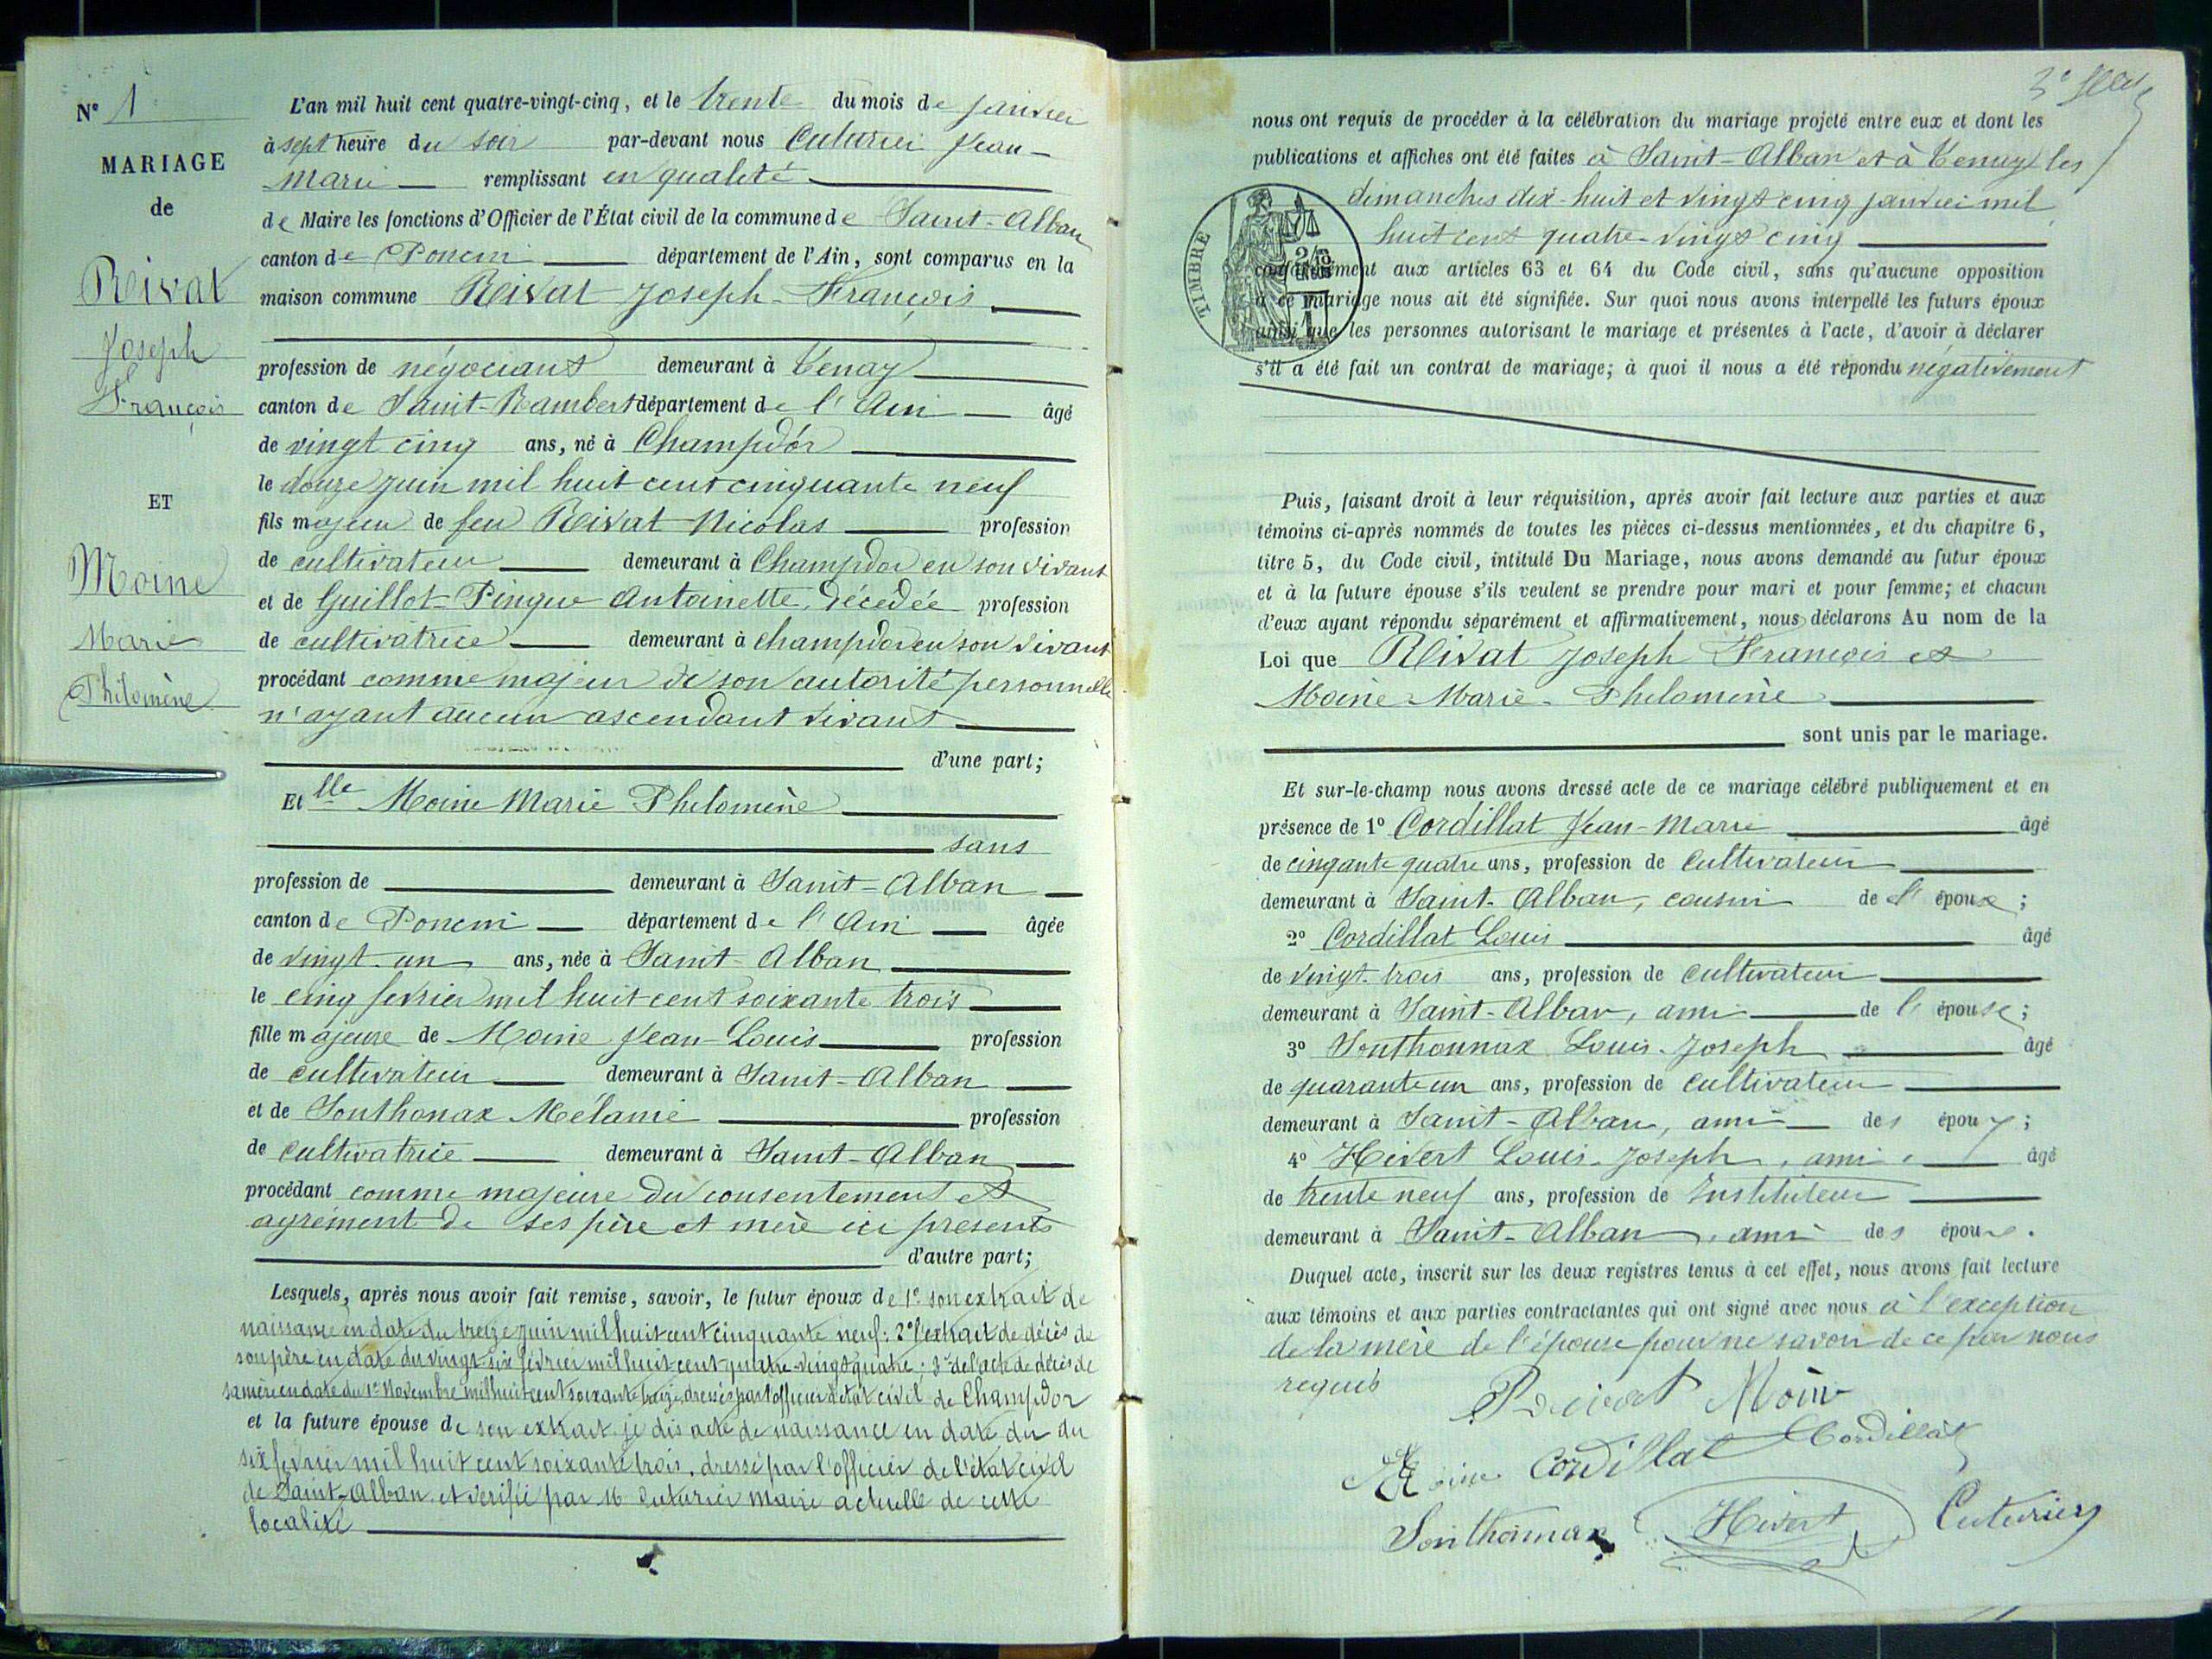 N° 1
MARIAGE
de
Reivat
Joseph
François
ET
Moine
Marie
Philomène
L'an mil huit cent quatre-vingt-cinq, et le trente du mois de janvier
à sept heure du soir par-devant nous Cuturier Jean-
Marie remplissant en qualité
de Maire les fonctions d'Officier de l'État civil de la commune de Saint-Alban
canton de Poncin département de l'Ain, sont comparus en la
maison commune Reivat Joseph-François
profession de négociant demeurant à Tenay
canton de Saint-Rambert département de l'Ain âgé
de vingt cinq ans, né à Champdor
le douze juin mil huit cent cinquante neuf
fils majeur de feu Reivat Nicolas profession
de cultivateur demeurant à Champdor en son vivant
et de Guillot-Pingue Antoinette, décédée profession
de cultivatrice demeurant à champdor en son vivant
procédant comme majeur de son autorité personnelle
n'ayant aucun ascendant vivant
d'une part;
Et Lle Moine Marie Philomène
sans
profession de demeurant à Saint-Alban
canton de Poncin département de l'Ain âgée
de vingt-un ans, née à Saint-Alban
le cinq fevrier mil huit cent soixante trois
fille majeure de Moine Jean-Louis profession
de cultivateur demeurant à Saint-Alban
et de Sonthonax Mélanie profession
de cultivatrice demeurant à Saint-Alban
procédant comme majeure du consentement et
agrément de ses père et mère ici présents
d'autre part;
Lesquels, après nous avoir fait remise, savoir, le futur époux de 1° son extrait de
naissance en date du treize juin mil huit cent cinquante neuf: 2° l'extrait de décès de
son père en date du vingt-six février mil huit cent quatre-vingt quatre; 3° de l'acte de décès de
sa mère en date du 1er Novembre mil huit cent soixante treize, dressés par l'officier d'état civil de Champdor
et la future épouse de son extrait je dis acte de naissance en date du du
six fevrier mil huit cent soixante trois, dressé par l'officier de l'état civil
de Saint-Alban et vérifié par M Cuturier maire actuelle de cette
localité
nous ont requis de procéder à la célébration du mariage projeté entre eux et dont les
publications et affiches ont été faites à Saint-Alban et à Tenay les
dimanches dix-huit et vingt cinq janvier mil
huit cent quatre-vingt cinq
TIMBRE
conformément aux articles 63 et 64 du Code civil, sans qu'aucune opposition
à ce mariage nous ait été signifiée. Sur quoi nous avons interpellé les futurs époux
ainsi que les personnes autorisant le mariage et présentes à l'acte, d'avoir à déclarer
s'il a été fait un contrat de mariage; à quoi il nous a été répondu négativement
Puis, faisant droit à leur réquisition, après avoir fait lecture aux parties et aux
témoins ci-après nommés de toutes les pièces ci-dessus mentionnées, et du chapitre 6,
titre 5, du Code civil, intitulé Du Mariage, nous avons demandé au futur époux
et à la future épouse s'ils veulent se prendre pour mari et pour femme; et chacun
d'eux ayant répondu séparément et affirmativement, nous déclarons Au nom de la
Loi que Reivat Joseph François et
Moine Marie-Philomène
sont unis par le mariage.
Et sur-le-champ nous avons dressé acte de ce mariage célébré publiquement et en
présence de 1° Cordillat Jean-Marie âgé
de cinqante quatre ans, profession de Cultivateur
demeurant à Saint-Alban, cousin de l'épouse;
2° Cordillat Louis âgé
de vingt-trois ans, profession de cultivateur
demeurant à Saint-Alban, ami de l'épouse;
3° Sonthonnax Louis-Joseph âgé
de quarante un ans, profession de cultivateur
demeurant à Saint-Alban, ami des époux;
4° Hivert Louis-Joseph, ami âgé
de trente neuf ans, profession de Instituteur
demeurant à Saint-Alban, ami des époux.
Duquel acte, inscrit sur les deux registres tenus à cet effet, nous avons fait lecture
aux témoins et aux parties contractantes qui ont signé avec nous à l'exception
de la mère de l'épouse pour ne savoir de ce par nous
requis
Reivat Moine
Moine Cordillat Cordillat
Sonthonnax Hivert Cuturier